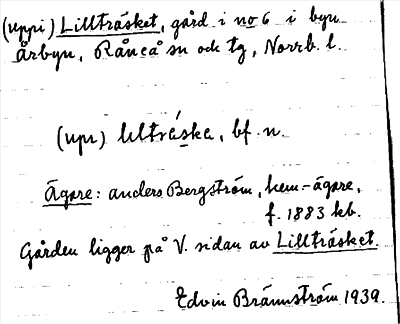 (uppi) Lillträsket, gård i no 6 i byn
Årbyn, Råneå sn och tg, Norrb. l.
(upi) lilträske, bf. n.
Ägare: anders Bergström, hem-ägare,
f. 1883 kb.
Gården ligger på V. sidan av Lillträsket.
Edvin Brännström 1939.